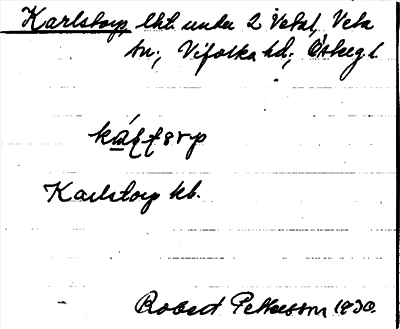 Karlstorp, lht. under 2 Vetal, Veta
sn., Vifolka hd., Östergl.
Karlstorp kb.
Robert Pettersson 1930.